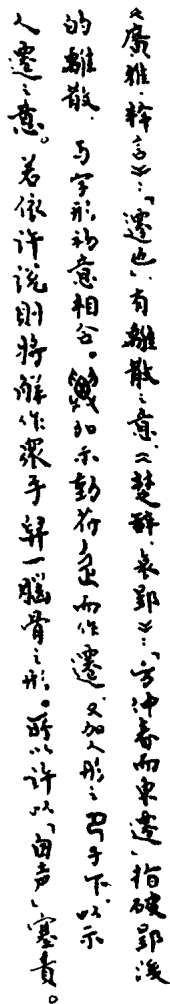 《廣雅·釋言》：「遷也」，有離散之意，《楚辭·哀郢》：「方仲春而東遷」指破郢後
的離散，与字形初意相合。加示動符辵而作遷，又加人形之㔾于下，以示
人遷之意。若依許說則將解作眾手舁一腦骨之形。所以許以「囟声」塞責。